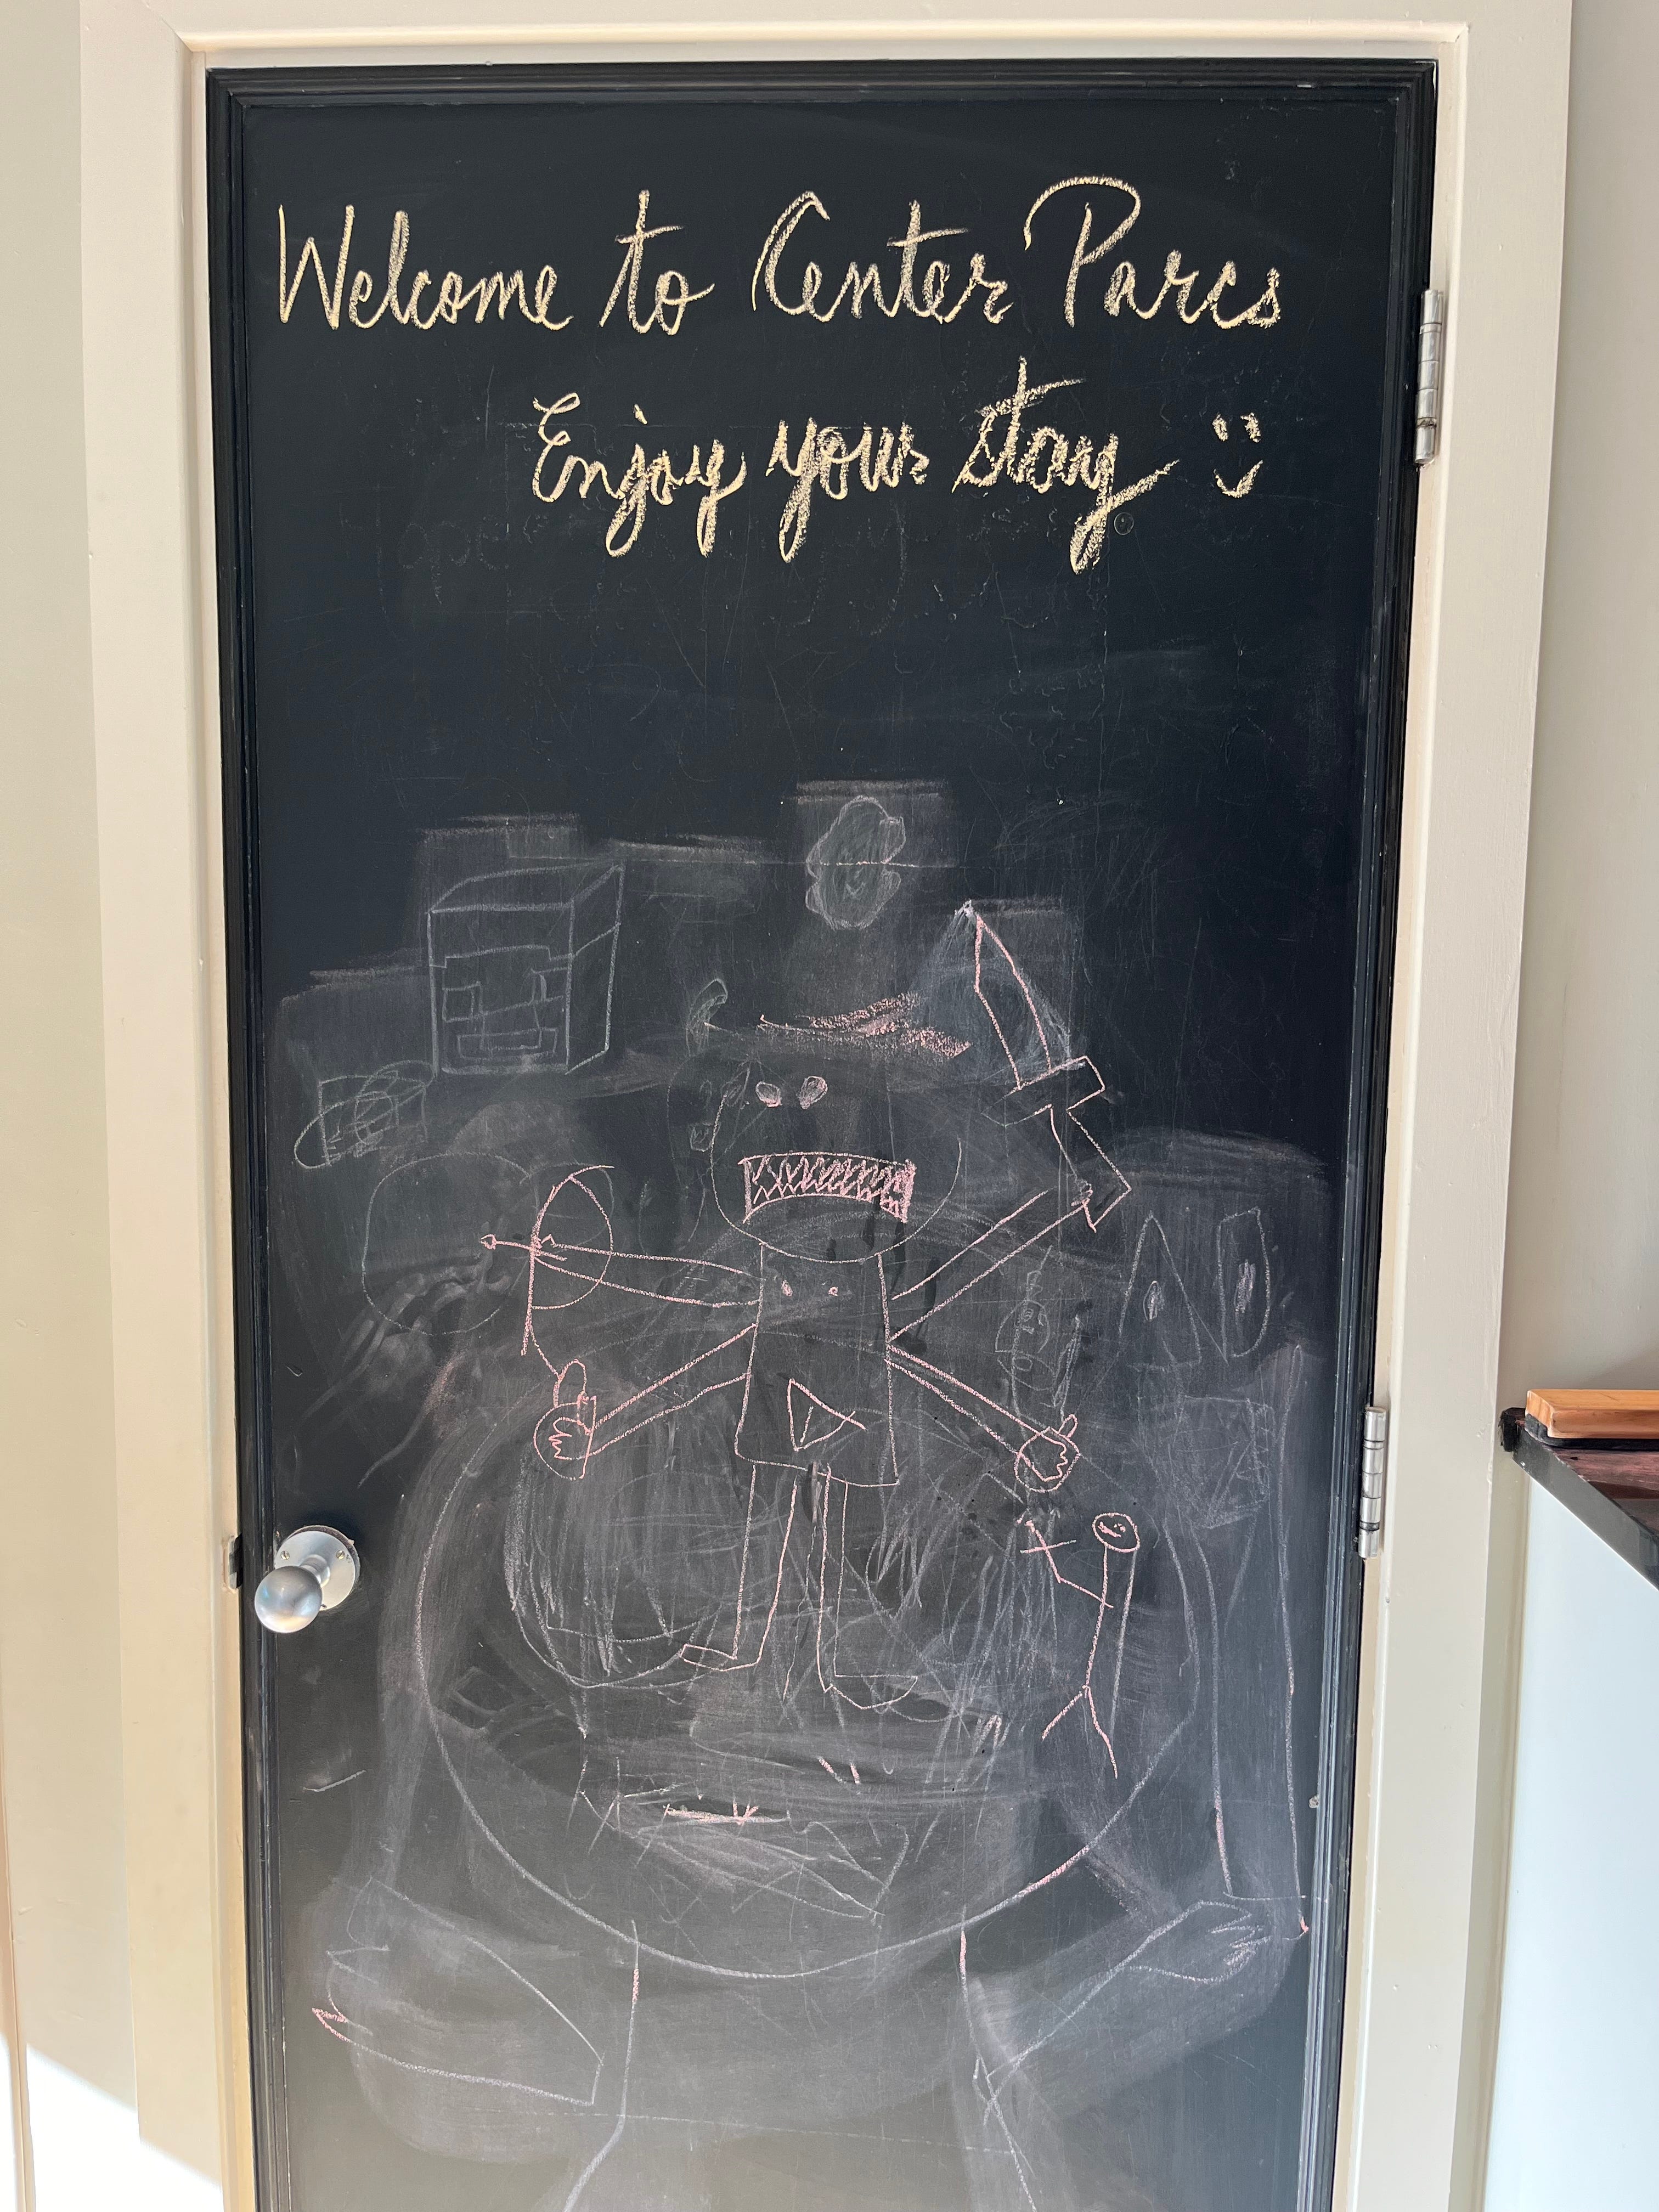 Welcome to Center Parcs
Enjoy your stay